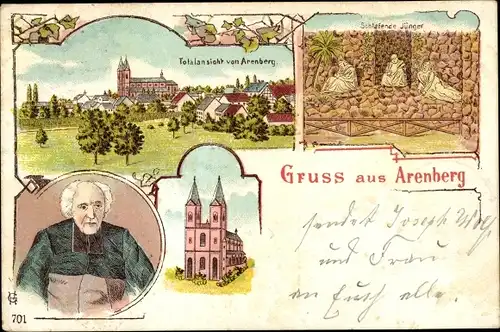 Totalansicht von Arenberg.
Schlafende Jünger
Gruss aus Arenberg
sendet Joseph Wolf
und Frau
an Euch alle.
701